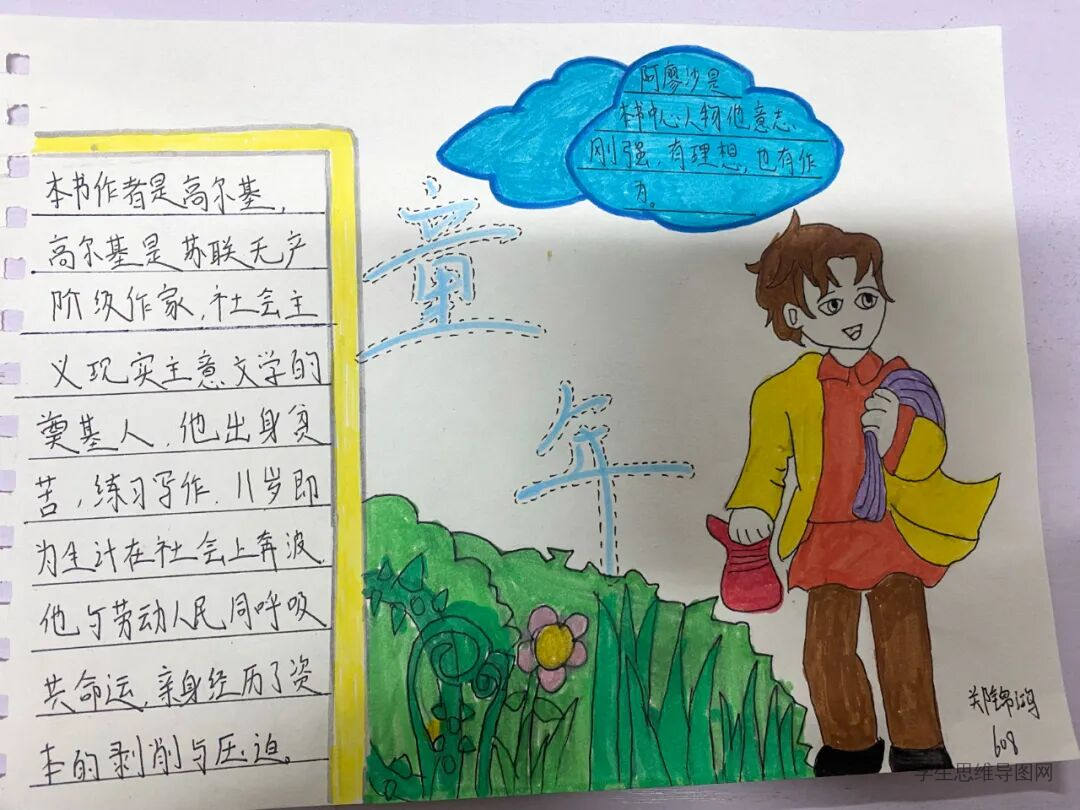 阿廖沙是
本书中心人物他意志
刚强,有理想,也有作
为。
童
年
本书作者是高尔基,
高尔基是苏联无产
阶级作家,社会主
义现实主意文学的
奠基人,他出身贫
苦,练习写作.11岁即
为生计在社会上奔波
他与劳动人民同呼吸
共命运,亲身经历了资
本的剥削与压迫。
郑锦鸿
608
学生思维导图网